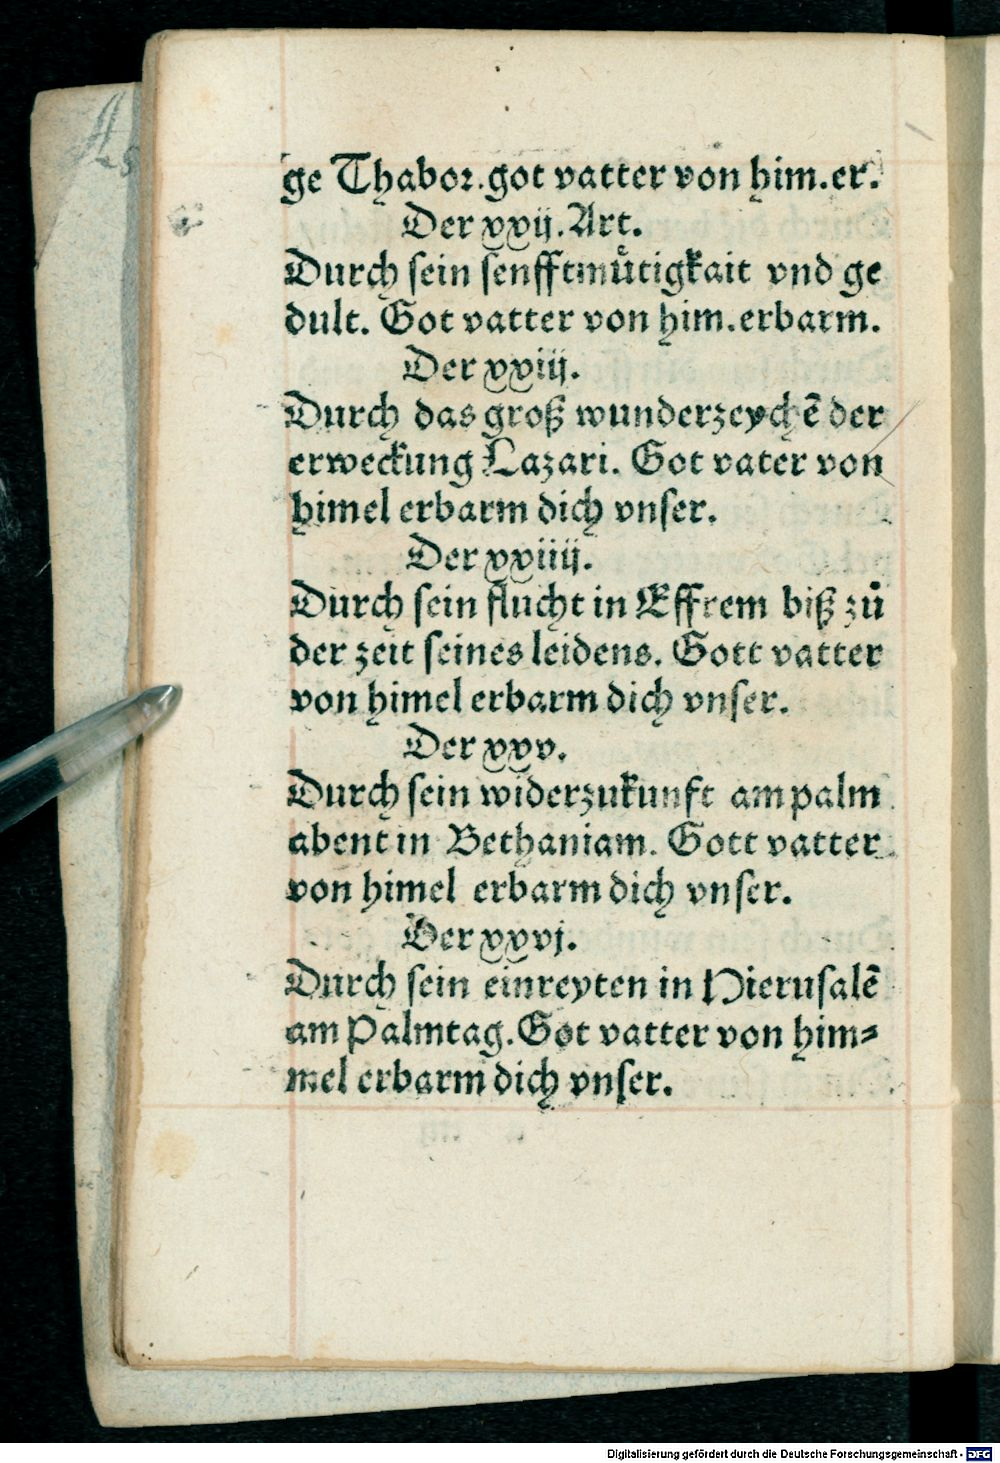 ge Thabor. got vatter von him. er.
Der xxij. Art.
Durch sein senfftmuͤtigkait vnd ge
dult. Got vatter von him. erbarm.
Der xxiij.
Durch das groß wunderzeychẽ der
erweckung Lazari. Got vater von
himel erbarm dich vnser.
Der xxiiij.
Durch sein flucht in Effrem biß zů
der zeit seines leidens. Gott vatter
von himel erbarm dich vnser.
Der xxv.
Durch sein widerzukunft am palm
abent in Bethaniam. Gott vatter
von himel erbarm dich vnser.
Der xxvj.
Durch sein einreyten in Hierusalẽ
am Palmtag. Got vatter von him⸗
mel erbarm dich vnser.
Digitalisierung gefördert durch die Deutsche Forschungsgemeinschaft - DFG